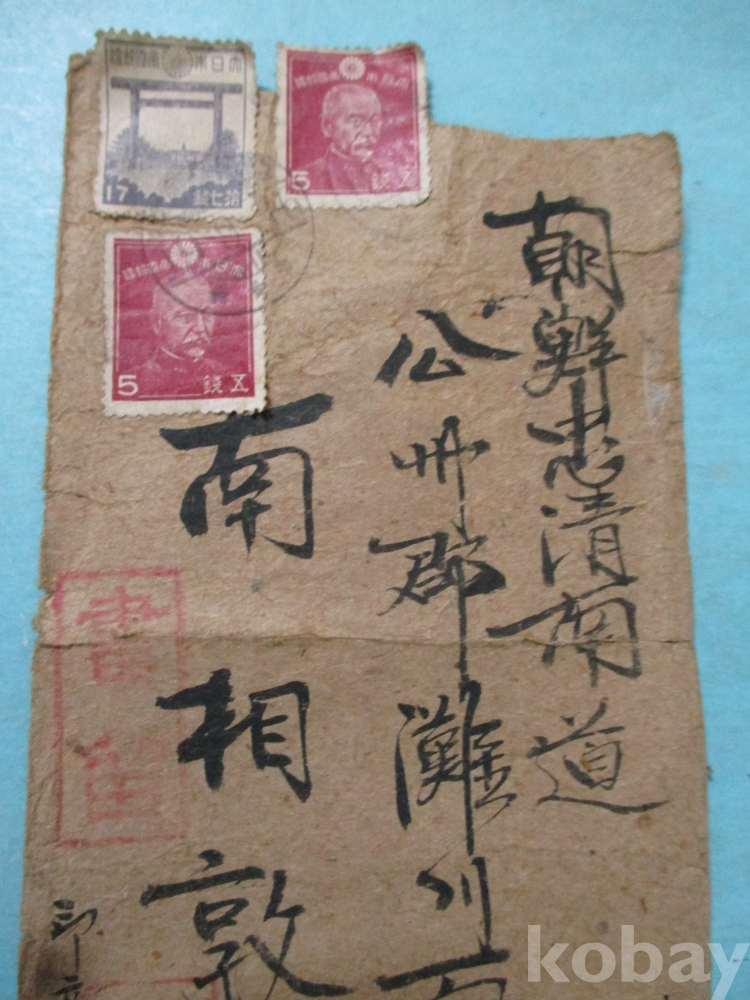 大日本帝國郵便
17
拾七錢
大日本帝國郵便
5
五錢
大日本帝國郵便
5
五錢
朝鮮忠清南道
公州郡灘川面
南相敦
書留
kobay